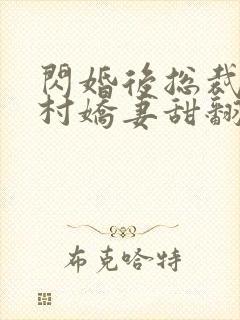 閃婚後总裁
村嬌妻甜翻
布克哈特